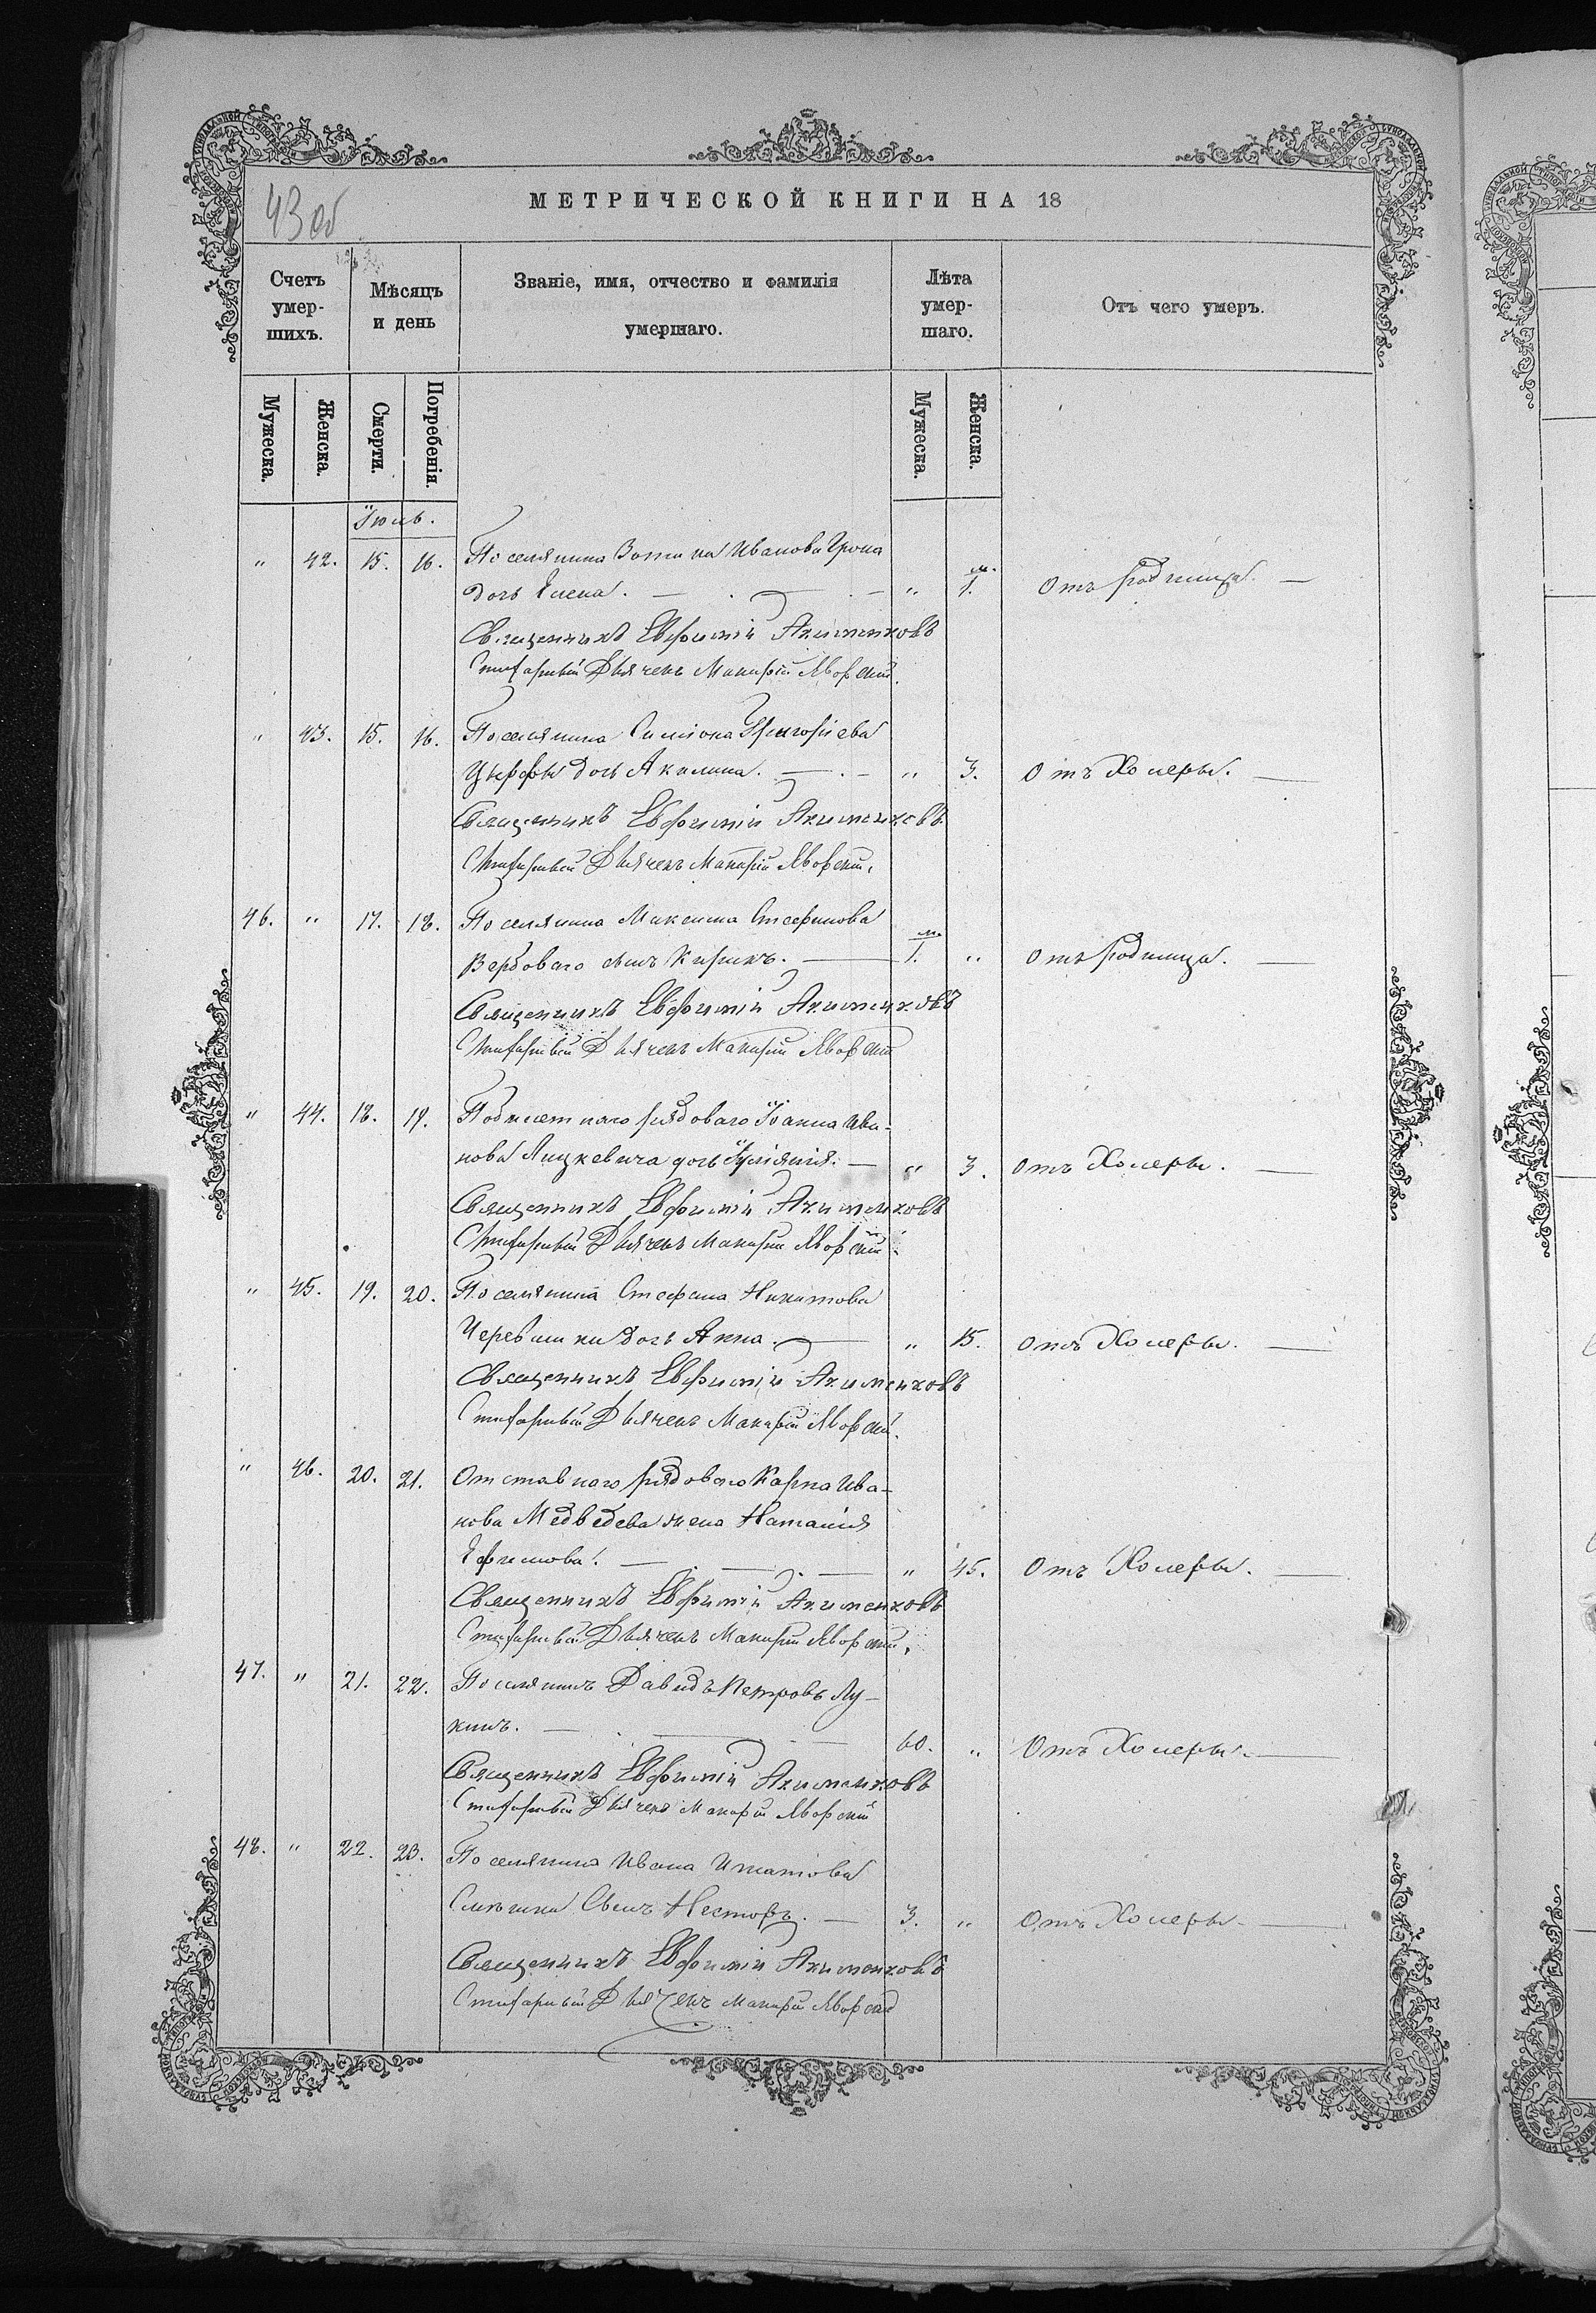 43 об
МЕТРИЧЕСКОЙ КНИГИ НА 18
Счетъ умер-шихъ. Мѣсяцъ и день Званіе, имя, отчество и фамилія умершаго. Лѣта умер-шаго. Отъ чего умеръ.
Мужеска. Женска. Смерти. Погребенія. Мужеска. Женска.
Іюль.
" 42. 15. 16. Поселянина Ивана
дочь Елена. " м. 1. Отъ родимца.
Священникъ Евфимій Акименковъ
Стихарный Дьячекъ Макарій Яворскій.
" 43. 15. 16. Поселянина Симіона Григоріева
Цырфы дочь Акилина. " 3. Отъ Холеры.
Священникъ Евфимій Акименковъ
Стихарный Дьячекъ Макарій Яворскій.
46. " 17. 18. Поселянина Максима Стефанова
Вербоваго сынъ Кирикъ. м. 1. " Отъ родимца.
Священникъ Евфимій Акименковъ
Стихарный Дьячекъ Макарій Яворскій
" 44. 18. 19. рядоваго Іоанна Ива-
нова Яцкевича дочь Іуліянія. " 3. Отъ Холеры.
Священникъ Евфимій Акименковъ
Стихарный Дьячекъ Макарій Яворскій.
" 45. 19. 20. Поселянина Стефана Никитова
дочь Анна. " 15. Отъ Холеры.
Священникъ Евфимій Акименковъ
Стихарный Дьячекъ Макарій Яворскій.
" 46. 20. 21. Отставнаго рядоваго Карпа Ива-
нова Медведева жена Наталія
Ефимова. " 45. Отъ Холеры.
Священникъ Евфимій Акименковъ
Стихарный Дьячекъ Макарій Яворскій.
47. " 21. 22. Поселянинъ Давидъ Петровъ Лу-
кинъ. 60. " Отъ Холеры.
Священникъ Евфимій Акименковъ
Стихарный Дьячекъ Макарій Яворскій
48. " 22. 23. Поселянина Ивана Игнатова
Сынъ Несторъ. 3. " Отъ Холеры.
Священникъ Евфимій Акименковъ
Стихарный Дьячекъ Макарій Яворскій